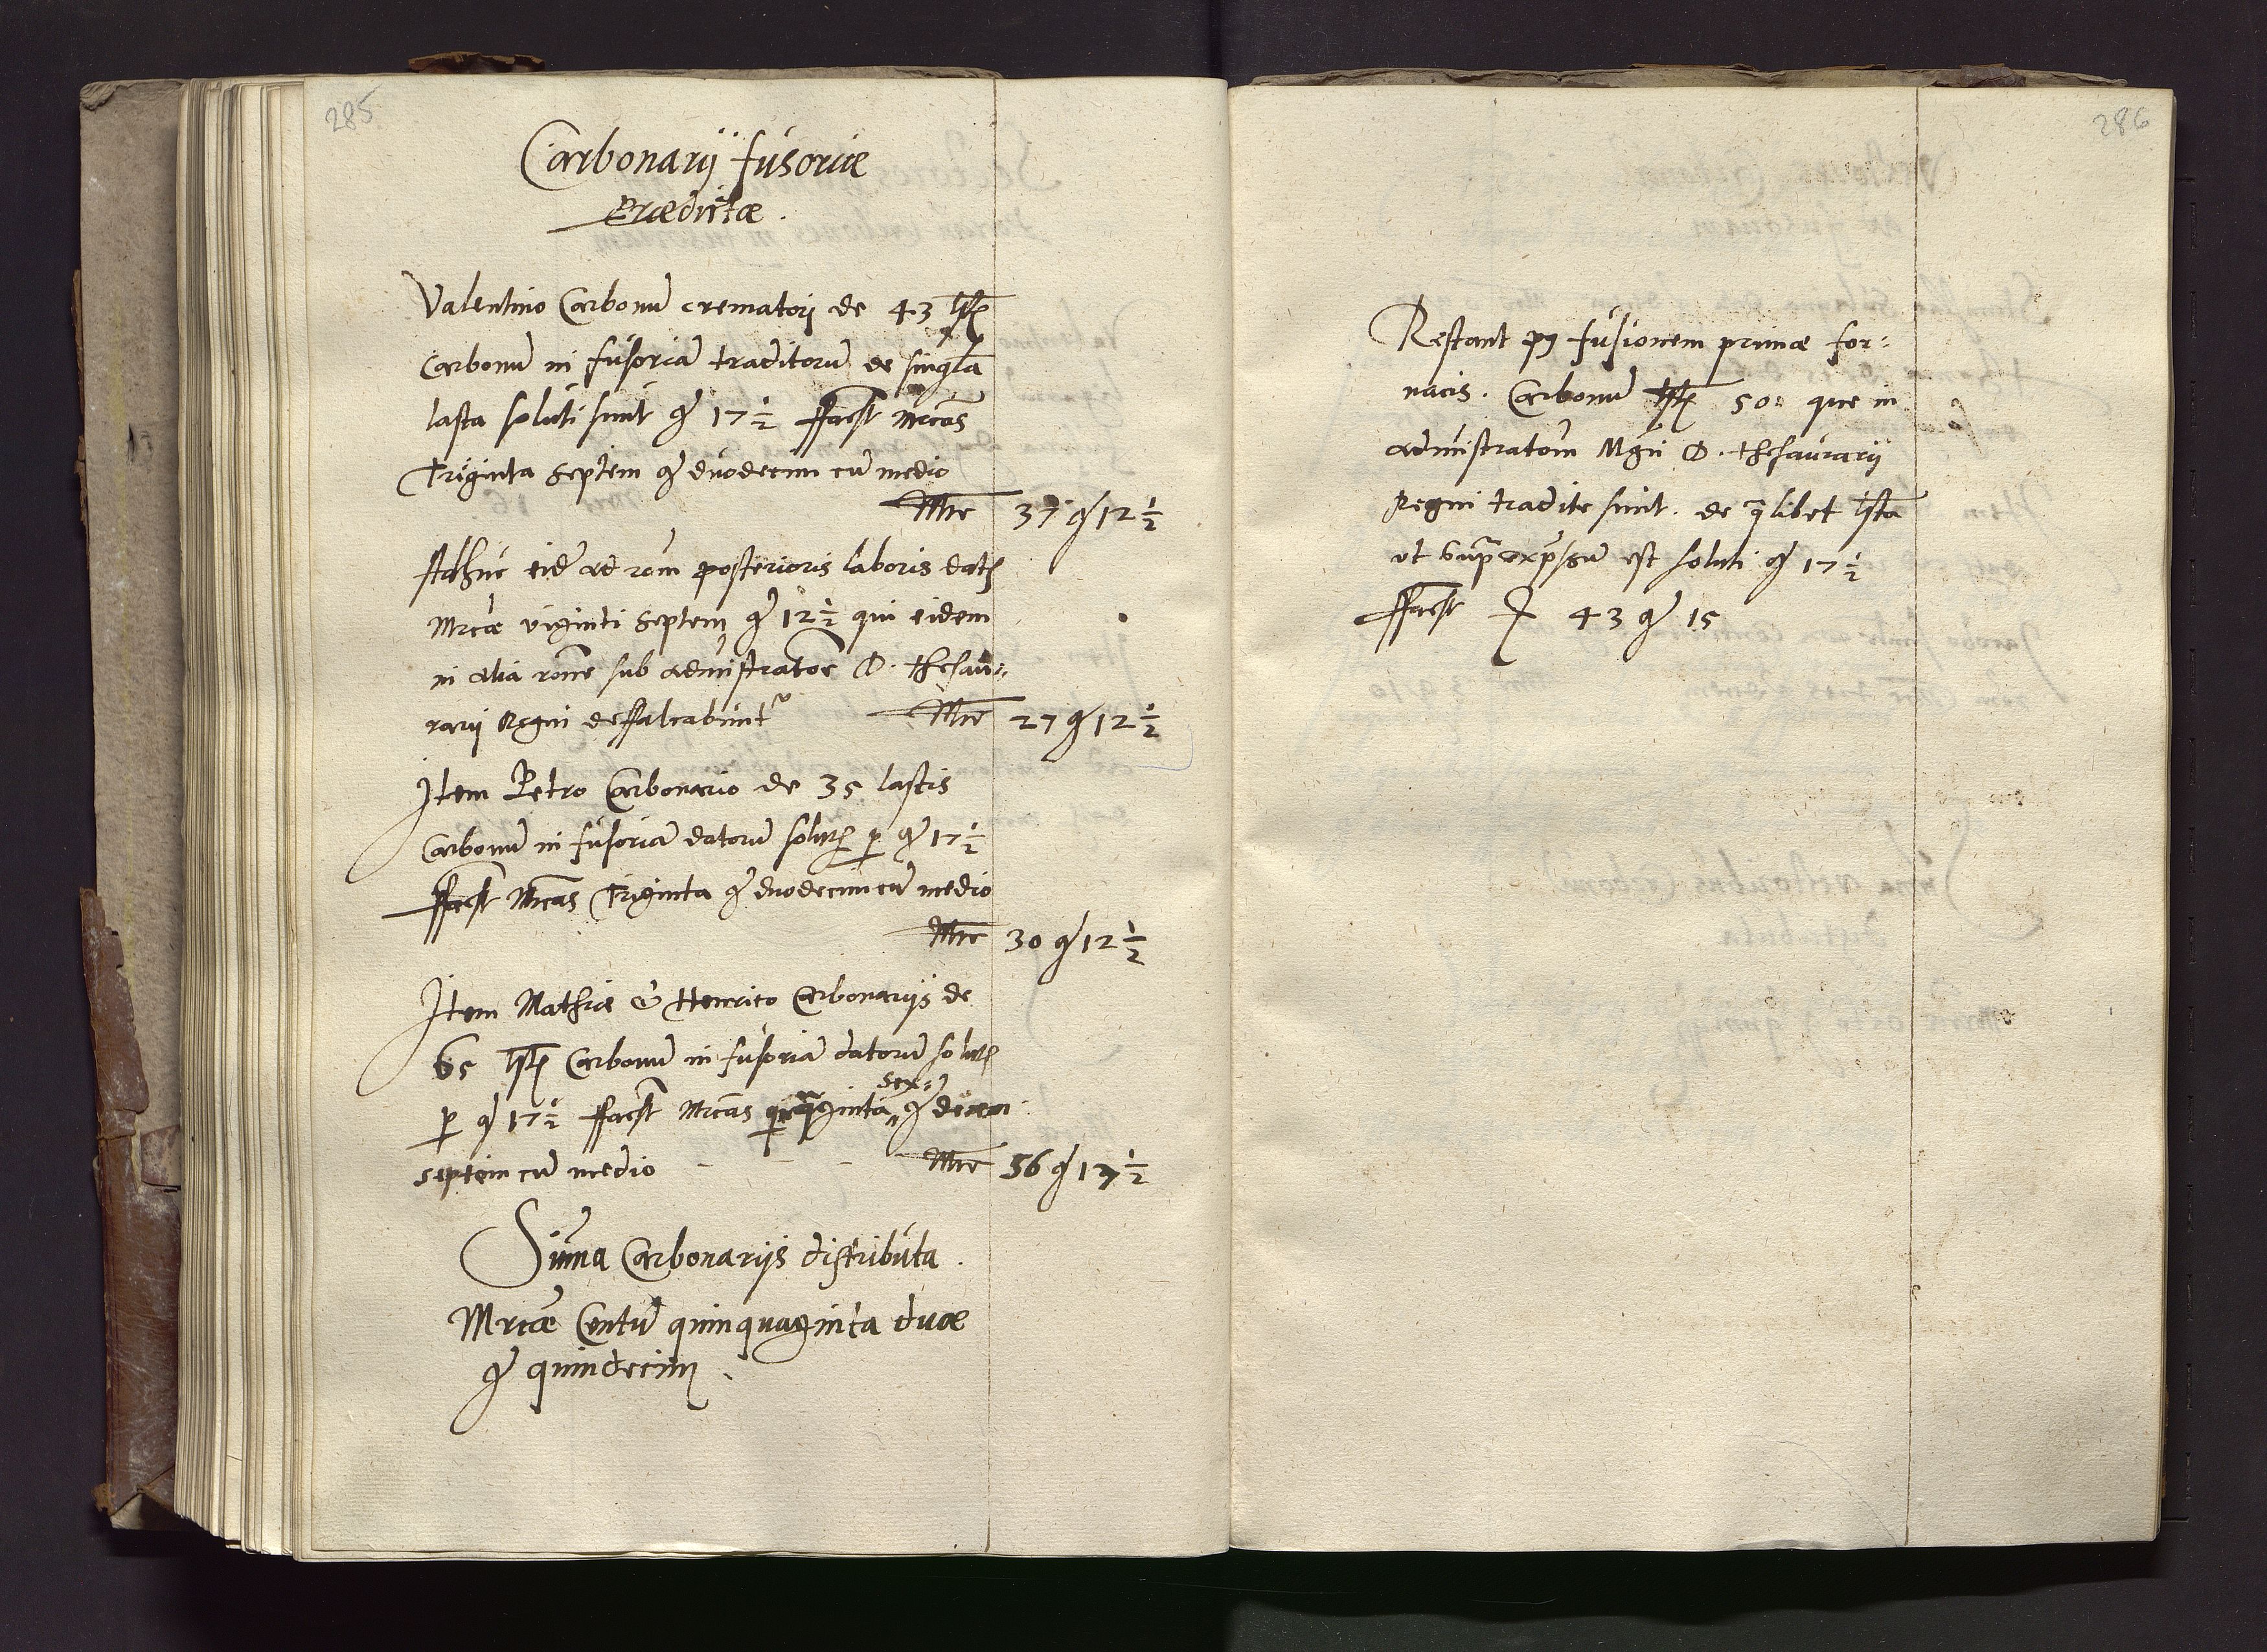 285
Carbonarij fusoriæ
Prædictæ.
Valentino Carbonū crematorj de 43 lſt
carbonū in fusoriā traditorū de singla
lasta soluti sunt gͦ 17 ½ ffacit Mrcas
Triginta septem gͦ duodecim cū medio
Mrc 37 gͦ 12 ½
Adhuc eidē ad rōm posterioris laboris datę
Mrcæ viginti septem gͦ 12 ½ qui eidem
in alia rōne sub admistratōe D. thesau:
rarij Regni deffalcabuntr Mrc 27 gͦ 12 ½
Item Petro Carbonario de 35 lastis
Carbonū in fusoriā datorū solutę p gͦ 17 ½
ffacit Mrcas Triginta gͦ duodecim cū medio
Mrc 30 gͦ 12 ½
Item Mathiæ & Henrico Carbonarijs de
65 lſt Carbonū in fusoriā datorū solutę
sex:
p gͦ 17 ½ ffacit Mrcas gͦ decem
septem cū medio - - - Mrc 56 gͦ 17 ½
Suma Carbonarijs distributa.
Mrcæ Centū quinquaginta duæ
gͦ quindecim.
286
Restant p9 fusionem primæ for:
nacis. Carbonū lſt 50: que in
admistratōm Mgci D. thesaurarij
Regni tradite sunt. de qlibet lſta
ut supra exp̄ssū est soluti gͦ 17 ½
ffacit 43 gͦ 15